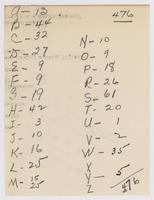 476
A - 13
B - 44
C - 32
D - 27
E - 9
F - 9
G - 19
H - 42
I - 3
J - 10
K - 16
L - 25
M - 15
25
N - 10
O - 9
P - 18
R - 26
S - 61
T - 20
U - 1
V - 2
W - 35
X
Y - 5
Z
476